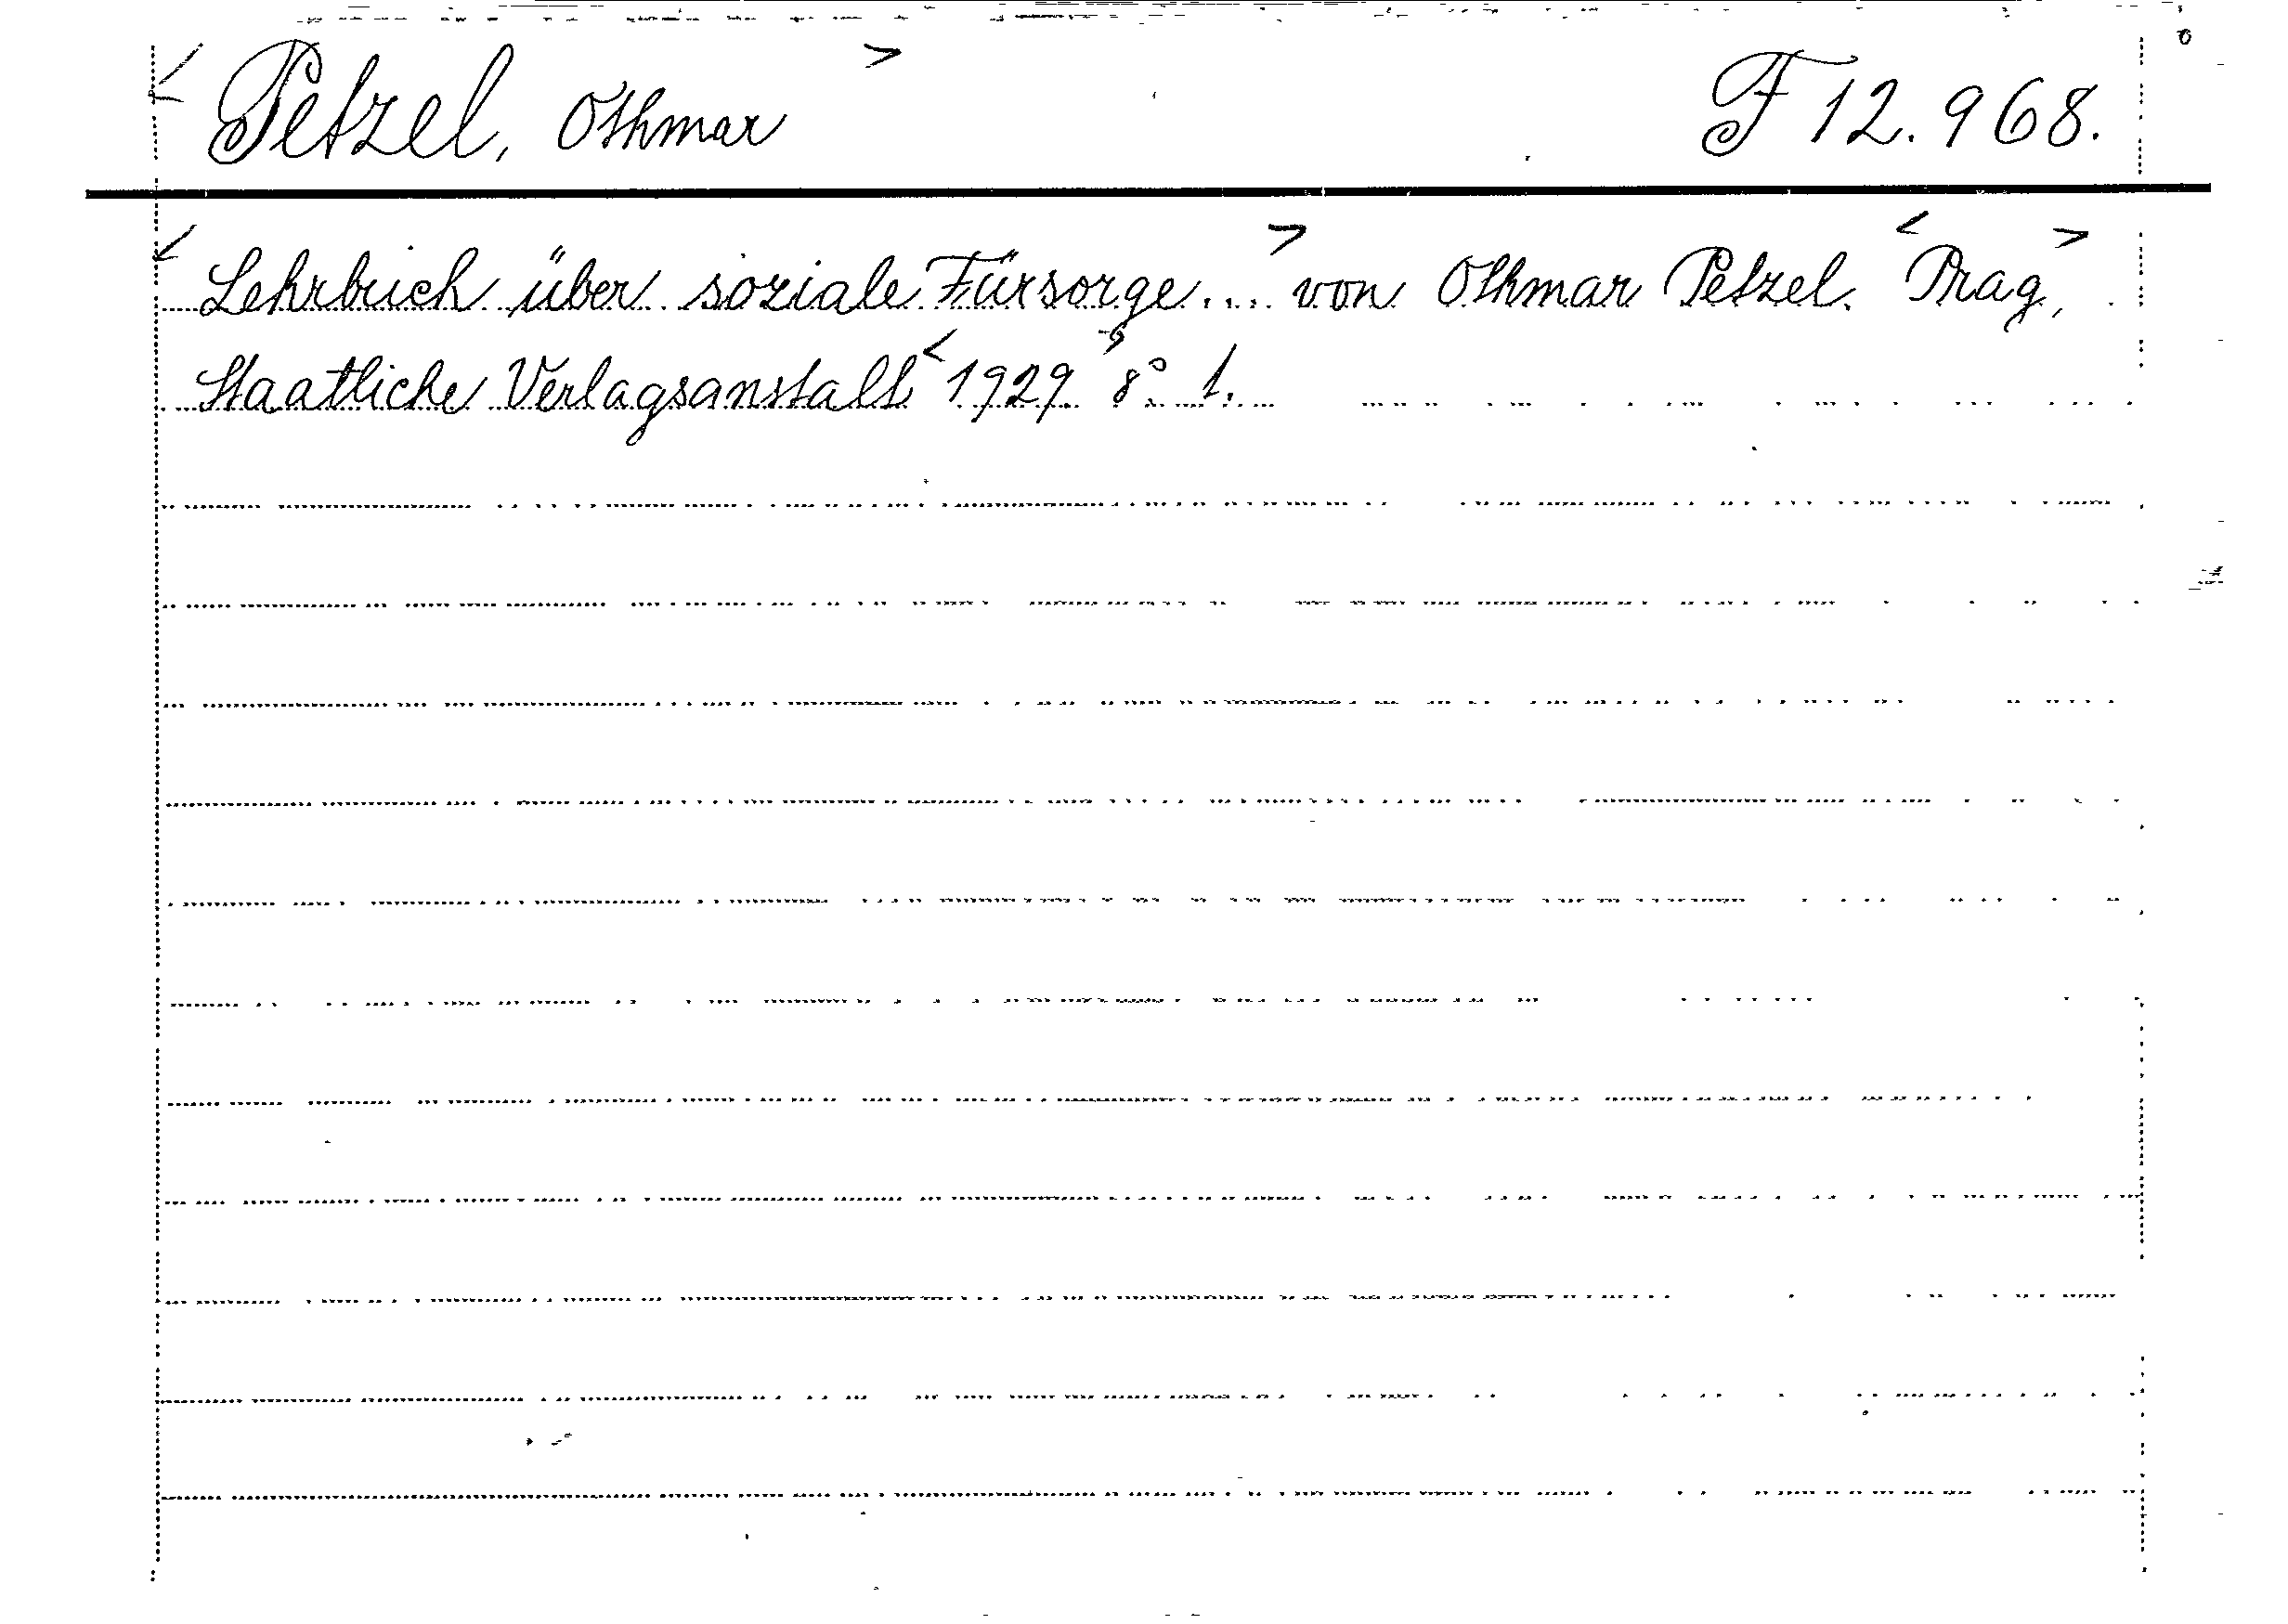 Petzel, Othmar F 12.968.
Lehrbuch über soziale Fürsorge.... von Othmar Petzel. Prag,
Staatliche Verlagsanstalt 1929. 8° 1.